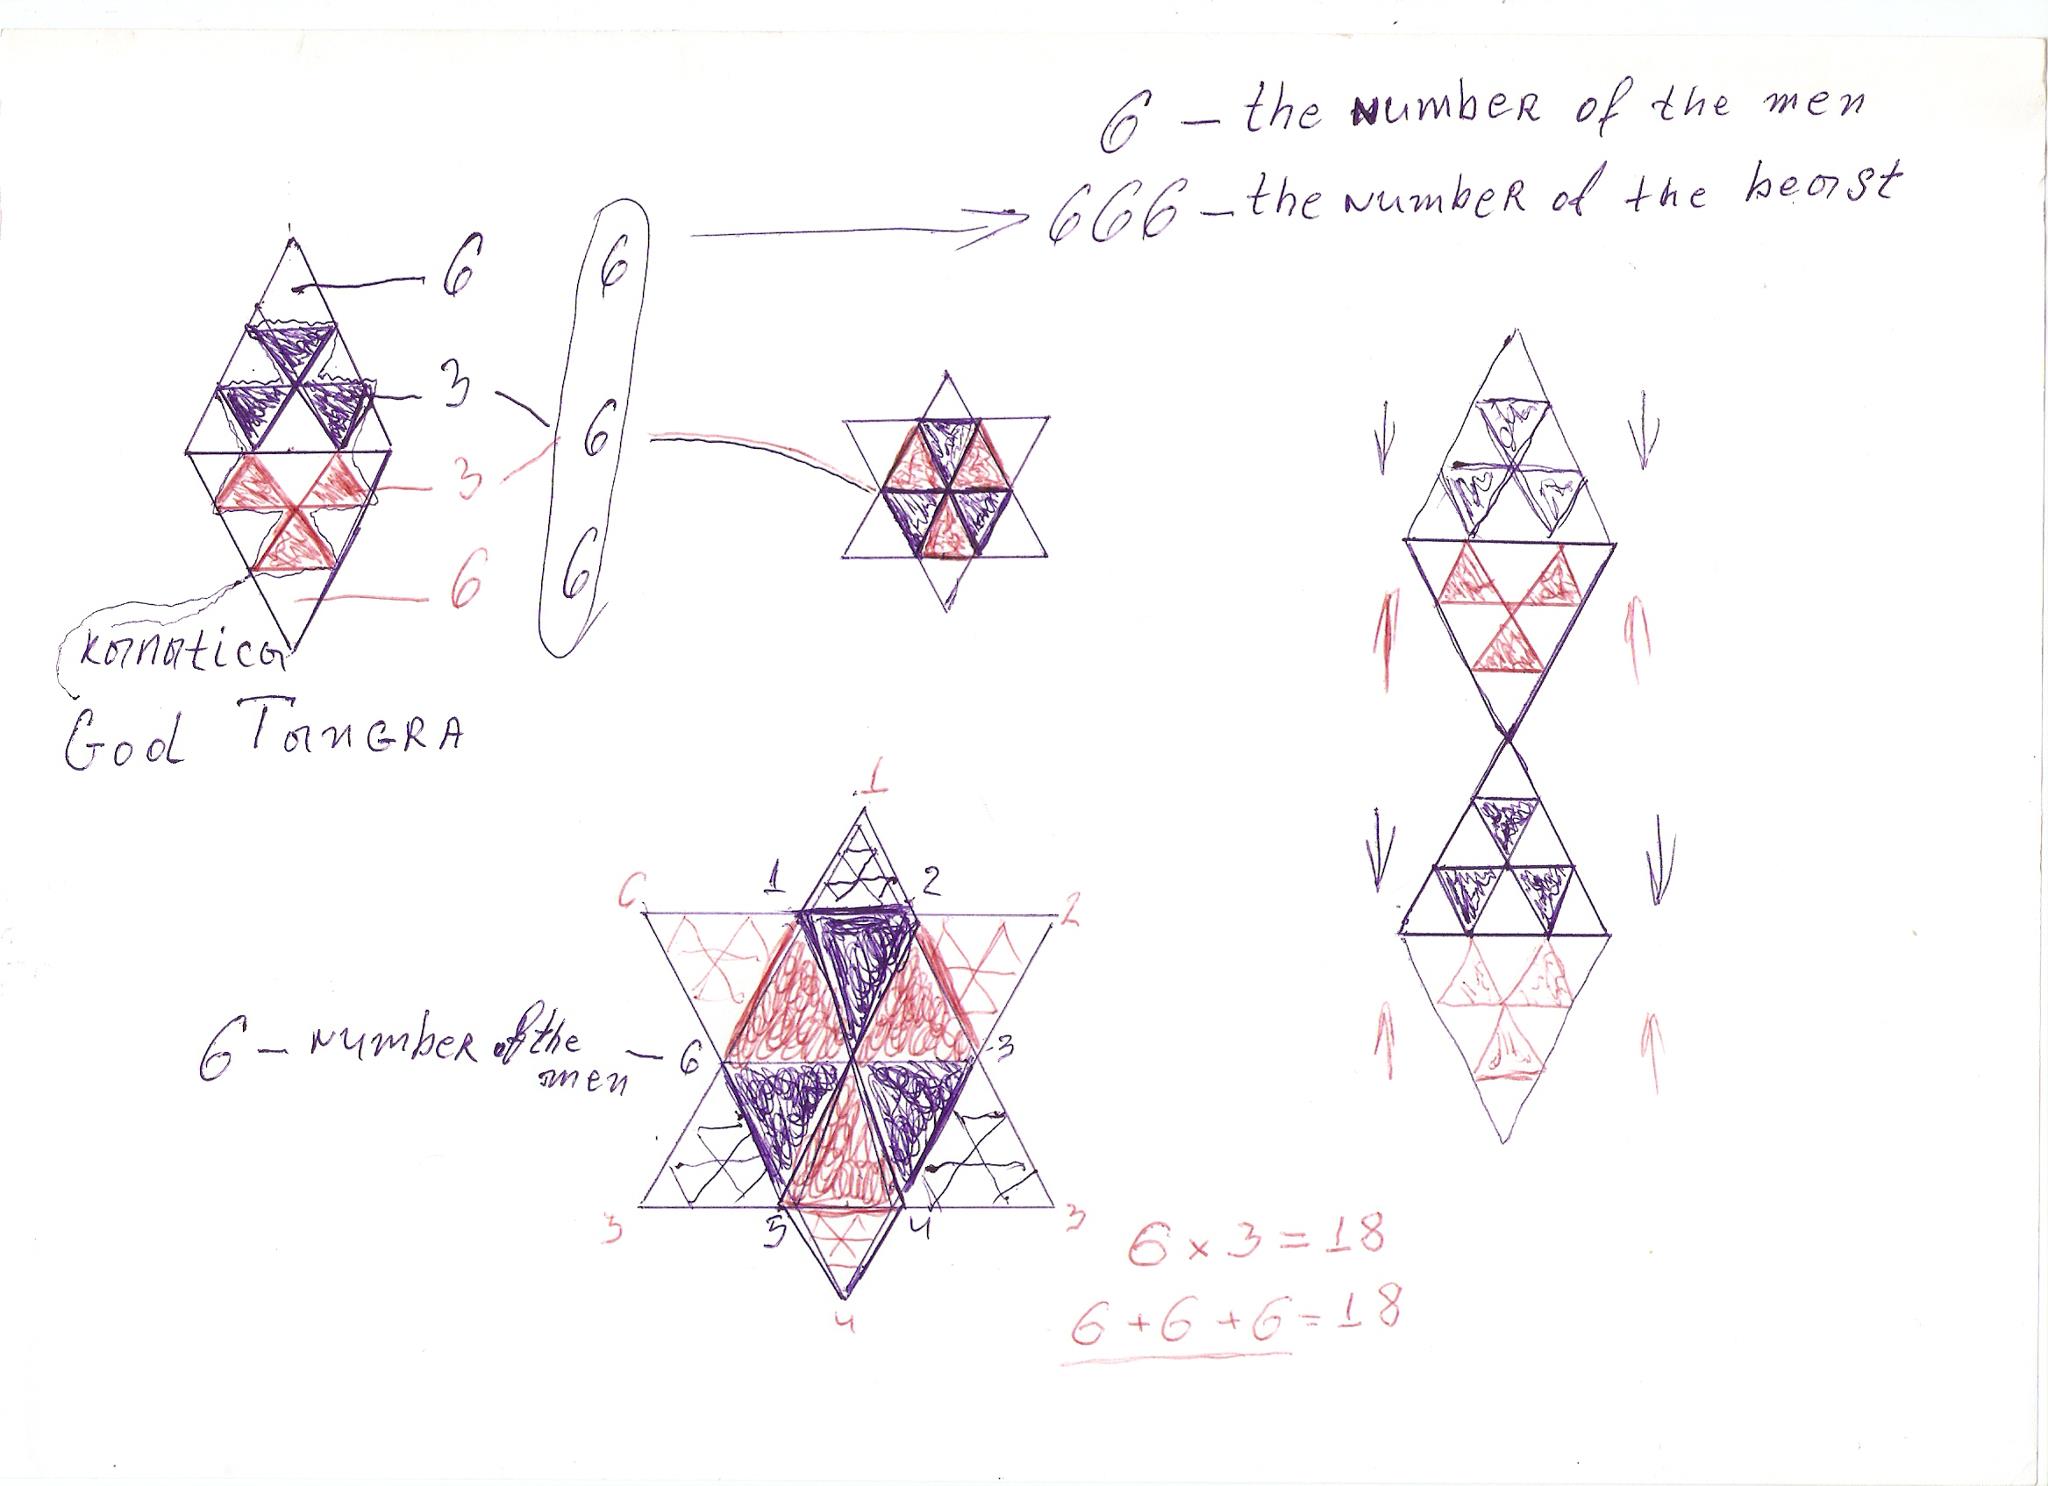 6 – the number of the men
666 – the number of the beast
6
3
3
6
6
6
6
kanatica
God TanGRA
1
1
2
6
2
6 – number of the men – 6
3
3
5
4
3
4
6 x 3 = 18
6 + 6 + 6 = 18